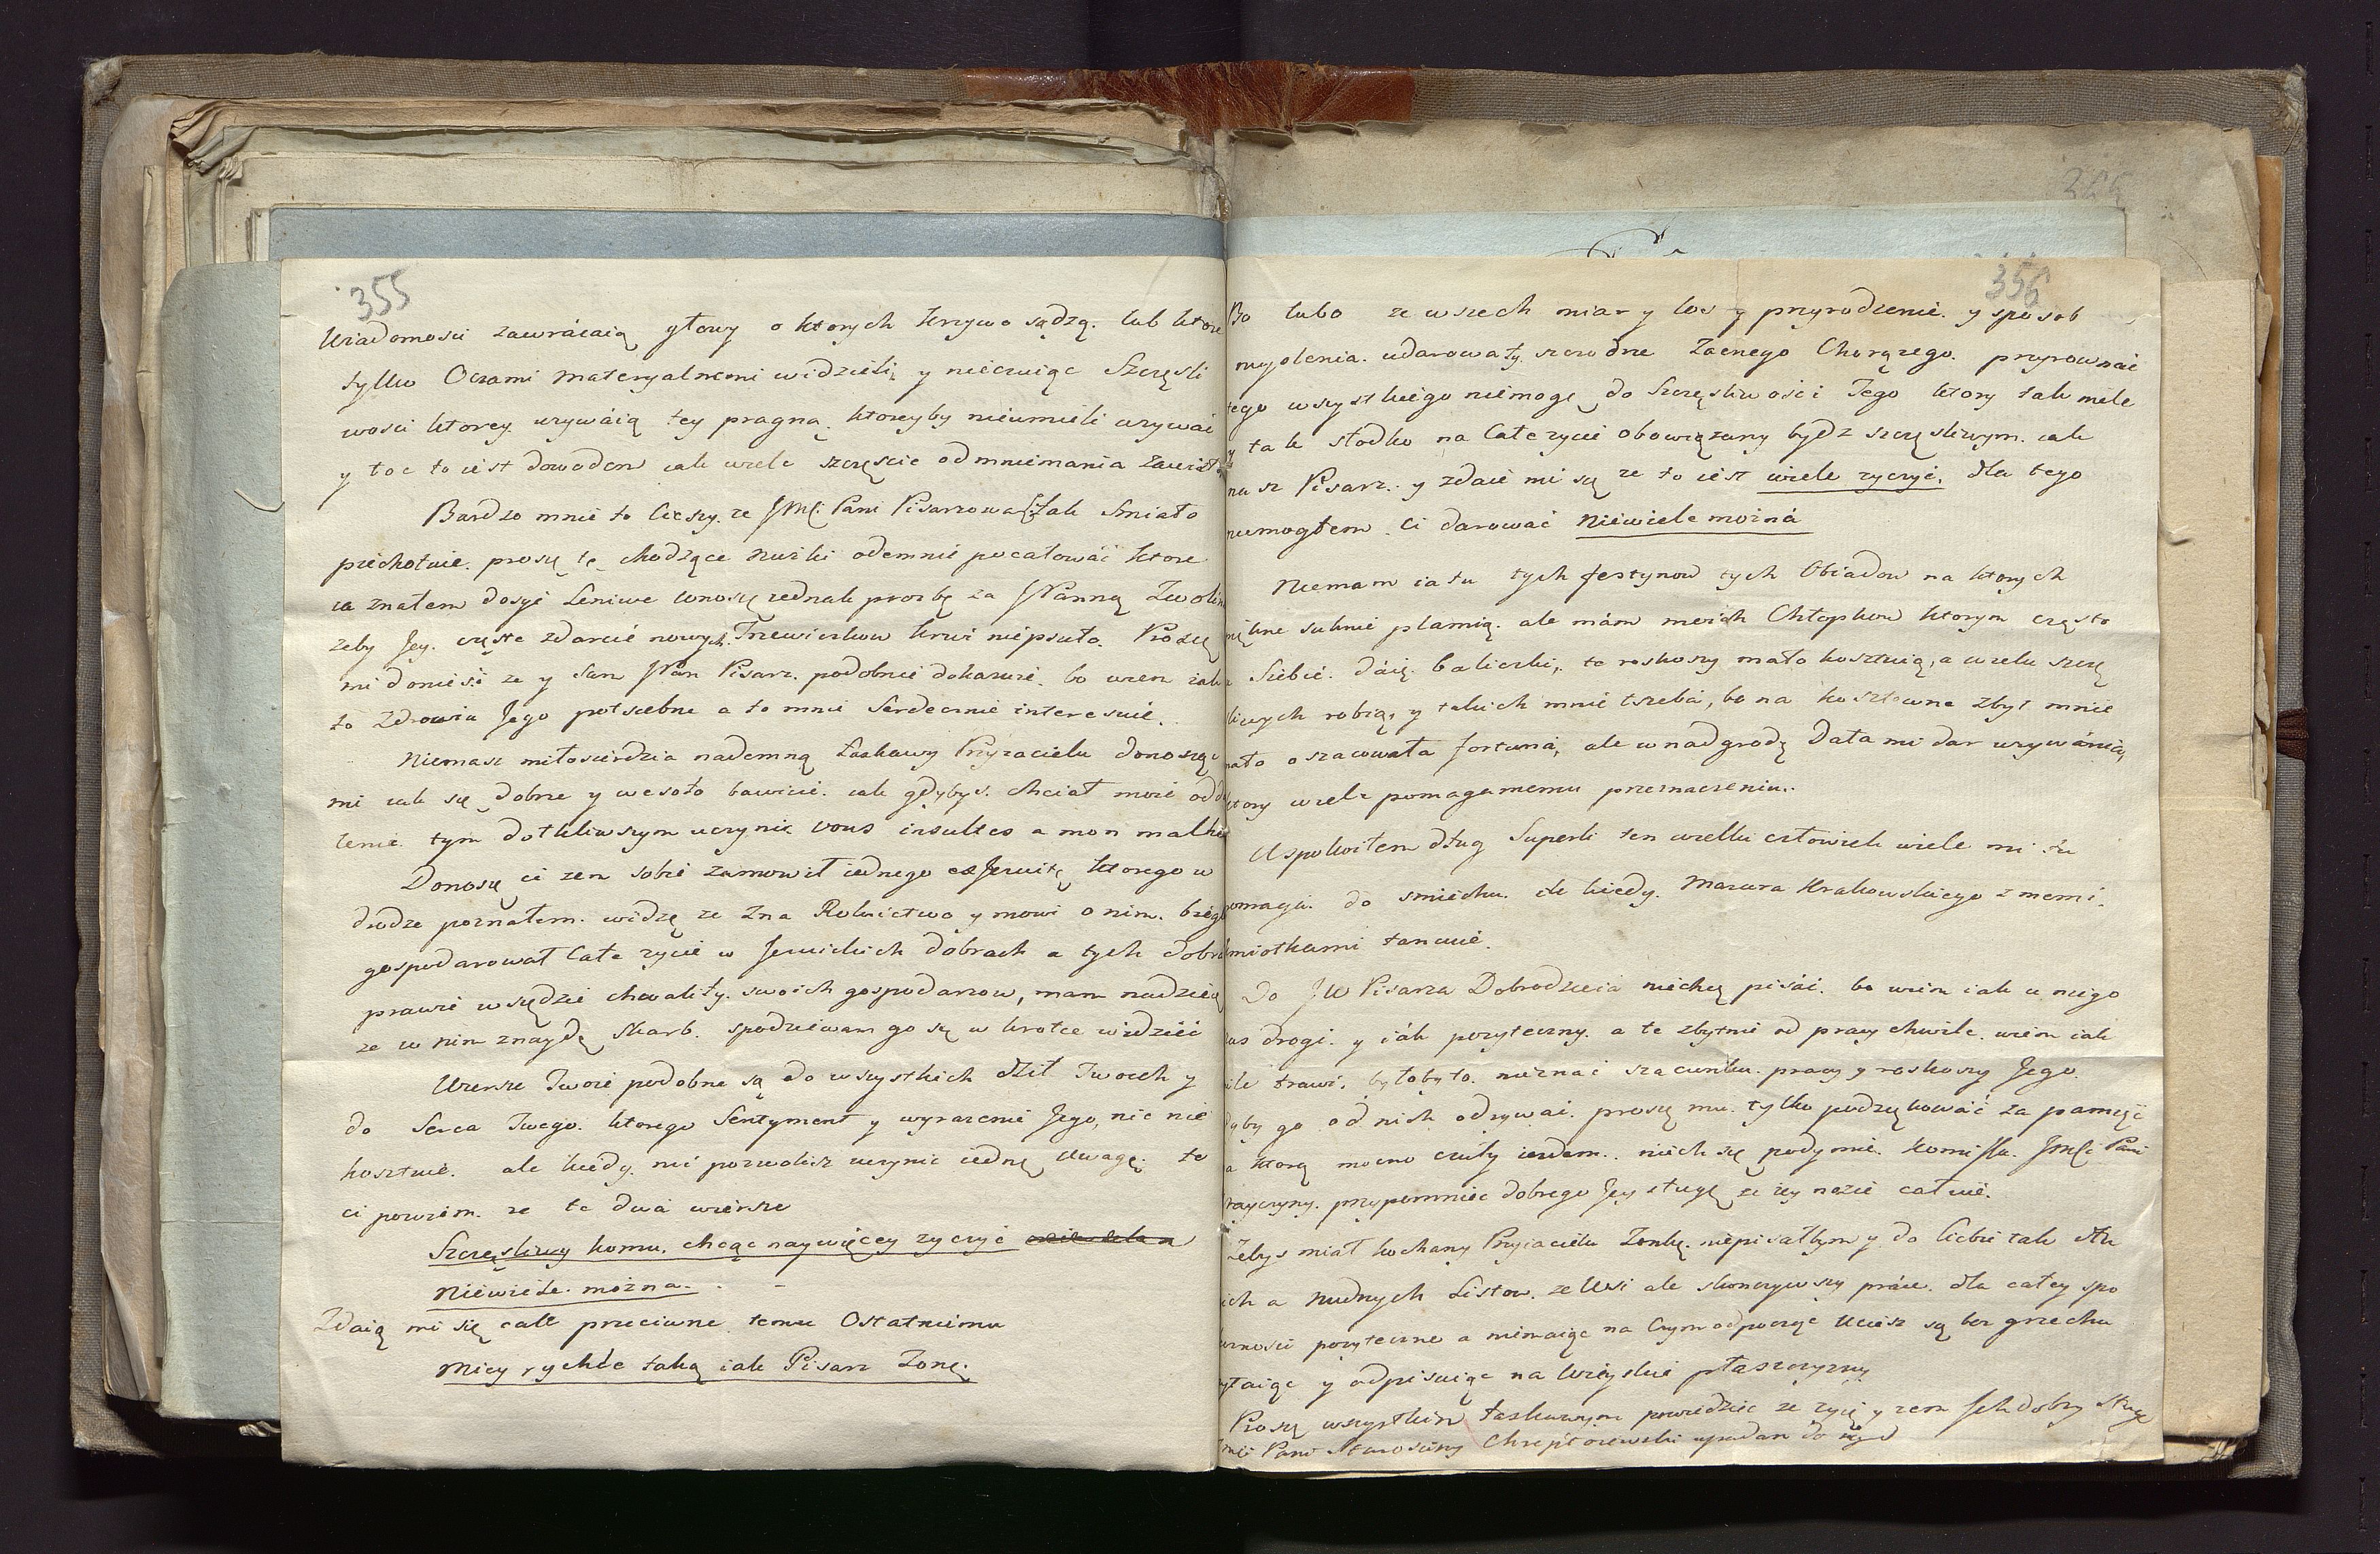 355
Wiadomosci zawrácaią głowy o ktorych krzywo sądzą. lub ktore
tylko Oczami materyalnemi widzieli, y nieczuiąc Szczęsli
wosci ktorey. używáią tey pragną. ktoreyby nieumieli używać
y toc to iest dowodem iak wiele szczęscie od mniemania zawisło
Bardzo mnie to Cieszy. ze JMCi Pani Pisarzowa tak Smiało
piechotuie. proszę te chodzące nużki odemnie pocałowáć ktore
ia znałem dosyć Leniwe wnoszę iednak prozbę za JPanną
żeby Jey. częste zdarcie nowych Trzewiczkow krwi niepsuło. Proszę
mi doniesć ze y Sam JPan Pisarz. podobnie dokazuie. bo wiem iak
to Zdrowiu Jego potrzebne a to mnie Serdecznie interesuie.
Niemasz miłosierdzia nademną Łaskawy Przyiacielu donosząc
mi iak się dobrze y wesoło bawicie. iak gdybys. chciał moie odda
lenie. tym dotkliwszym uczynic vous insultes a mon malheur
Donoszę ci żem sobie zamowił iednego exJezuitę ktorego w
drodze poznałem. widzę ze zna Rolnictwo y mowi o nim. biegle
gospodarował Całe życie w Jezuickich dobrach a tych dobra
prawie wszędzie chwaliły. swoich gospodarzow, mam nadzieię
ze w nim znaydę Skarb. spodziewam go się w krotce widzieć
Wiersze Twoie podobne są do wszystkich dzieł Twoich y
do Serca Twego. ktorego Sentyment y wyrazenie Jego, nic nie
kosztuie. ale kiedy. mi pozwolisz uczynic iednę Uwagę. to
ci powiem. ze te dwá wiersze
Szczęsliwy komu. chcąc naywięcey zyczyć
niewiele. można. . -
Zdaią mi się całe przeciwne temu Ostatniemu
Miey rychło taką iak Pisarz Zonę.
356
Bo lubo ze wszech miar y los y przyrodzenie. y sposob
myslenia. udarowały. szczodrze Zacnego Chorążego. przyrownać
tego wszystkiego niemogę do Szczęsliwości Tego ktory tak mile
y tak słodko na Całe życie obowiązany bydz szczęsliwym. iak
nasz Pisarz. y zdaie mi się ze to iest wiele zyczyć. dla tego
niemogłem Ci darować niewiele można
Niemam ia tu tych festynow tych Obiadow na ktorych
piękne suknie plamią. ale mám moich Chłopkow ktorym często
u Siebie. dáię. baliczki, te roskoszy mało kosztuią, a wielu szczę
sliwych robią, y takich mnie trzeba, bo na kosztowne zbyt mnie
mało oszacowała fortuná, ale w nadgrodę Dała mi dar uzywánia,
ktory wiele pomaga memu przeznaczeniu.
Uspokoiłem dług Superli ten wielki człowiek wiele mi tu
pomaga. do smiechu. ile kiedy. Mazura Krakowskiego z memi.
kmiotkami tancuie.
Do JW Pisarza Dobrodzieia niechcę pisáć. bo wiem iak u niego
czas drogi. y iák pozyteczny. a te zbytnie od pracy chwile. wiem iak
mile trawi, byłoby to. nieznać szacunku. pracy y roskoszy Jego.
gdyby go od nich odrywać. proszę mu. tylko podziękować za pamięć
za ktorą mocno czuły iestem.. niech się podymie. komissu. JMCi Pani
przypomniec dobrego Jey sługę ze iey nozie całuie.
Żebys miał kochany Przyiacielu Zonkę. niepisałbym y do Ciebie tak dłu
gich a nudnych Listow. ze Wsi ale skonczywszy práce. dla całey spo
łecznosci pozyteczne a niemaiąc na Czym odpocząć Ciesz się bez grzechu
czytaiąc y odpisuiąc na Wieyskie
Proszę wszystkim łaskawym powiedziec ze zyię y zem Ich dobry Sługa
JMCi Pani Starosciny Chreptowicki upadam do nóg